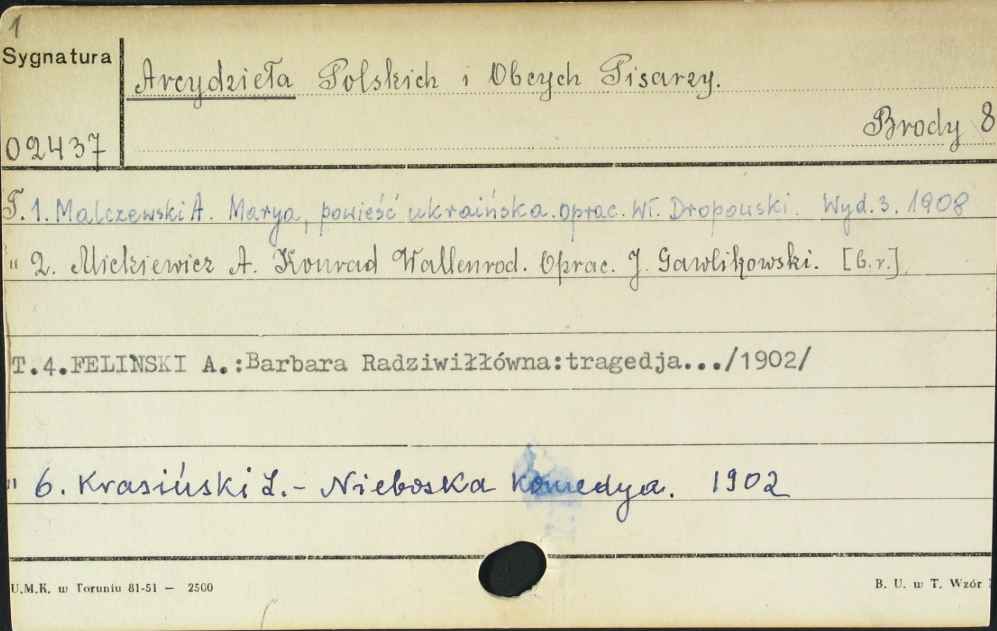 1
Sygnatura
Arcydzieła Polskich i Obcych Pisarzy.
Brody 8
02437
T. 1. Malczewski A. Marya, powieść ukraińska. oprac. Wł. Dropouski. Wyd. 3. 1908
" 2. Mickiewicz A. Konrad Wallenrod. Oprac. J. Gawlikowski. [b.r.]
T.4.FELINSKI A.:Barbara Radziwiłłówna:tragedja.../1902/
" 6. Krasiński Z. - Nieboska komedya. 1902
U.M.K. w Toruniu 81-51 — 2500
B. U. w T. Wzór